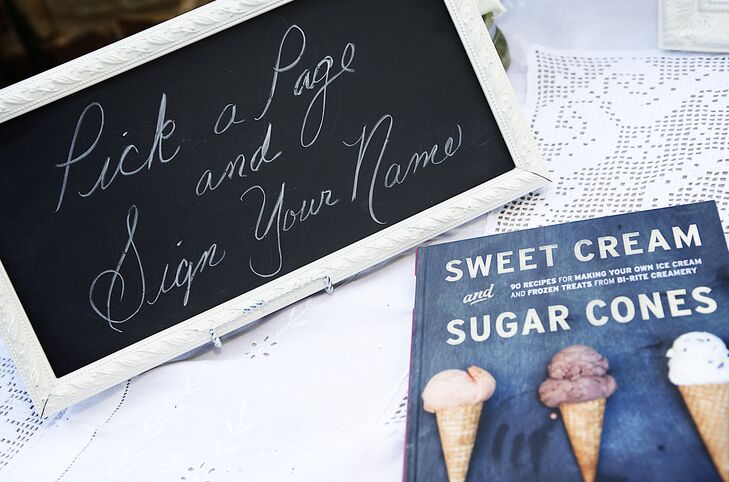 Pick a Page
and
Sign Your Name
SWEET CREAM
and 90 RECIPES FOR MAKING YOUR OWN ICE CREAM
AND FROZEN TREATS FROM BI-RITE CREAMERY
SUGAR CONES